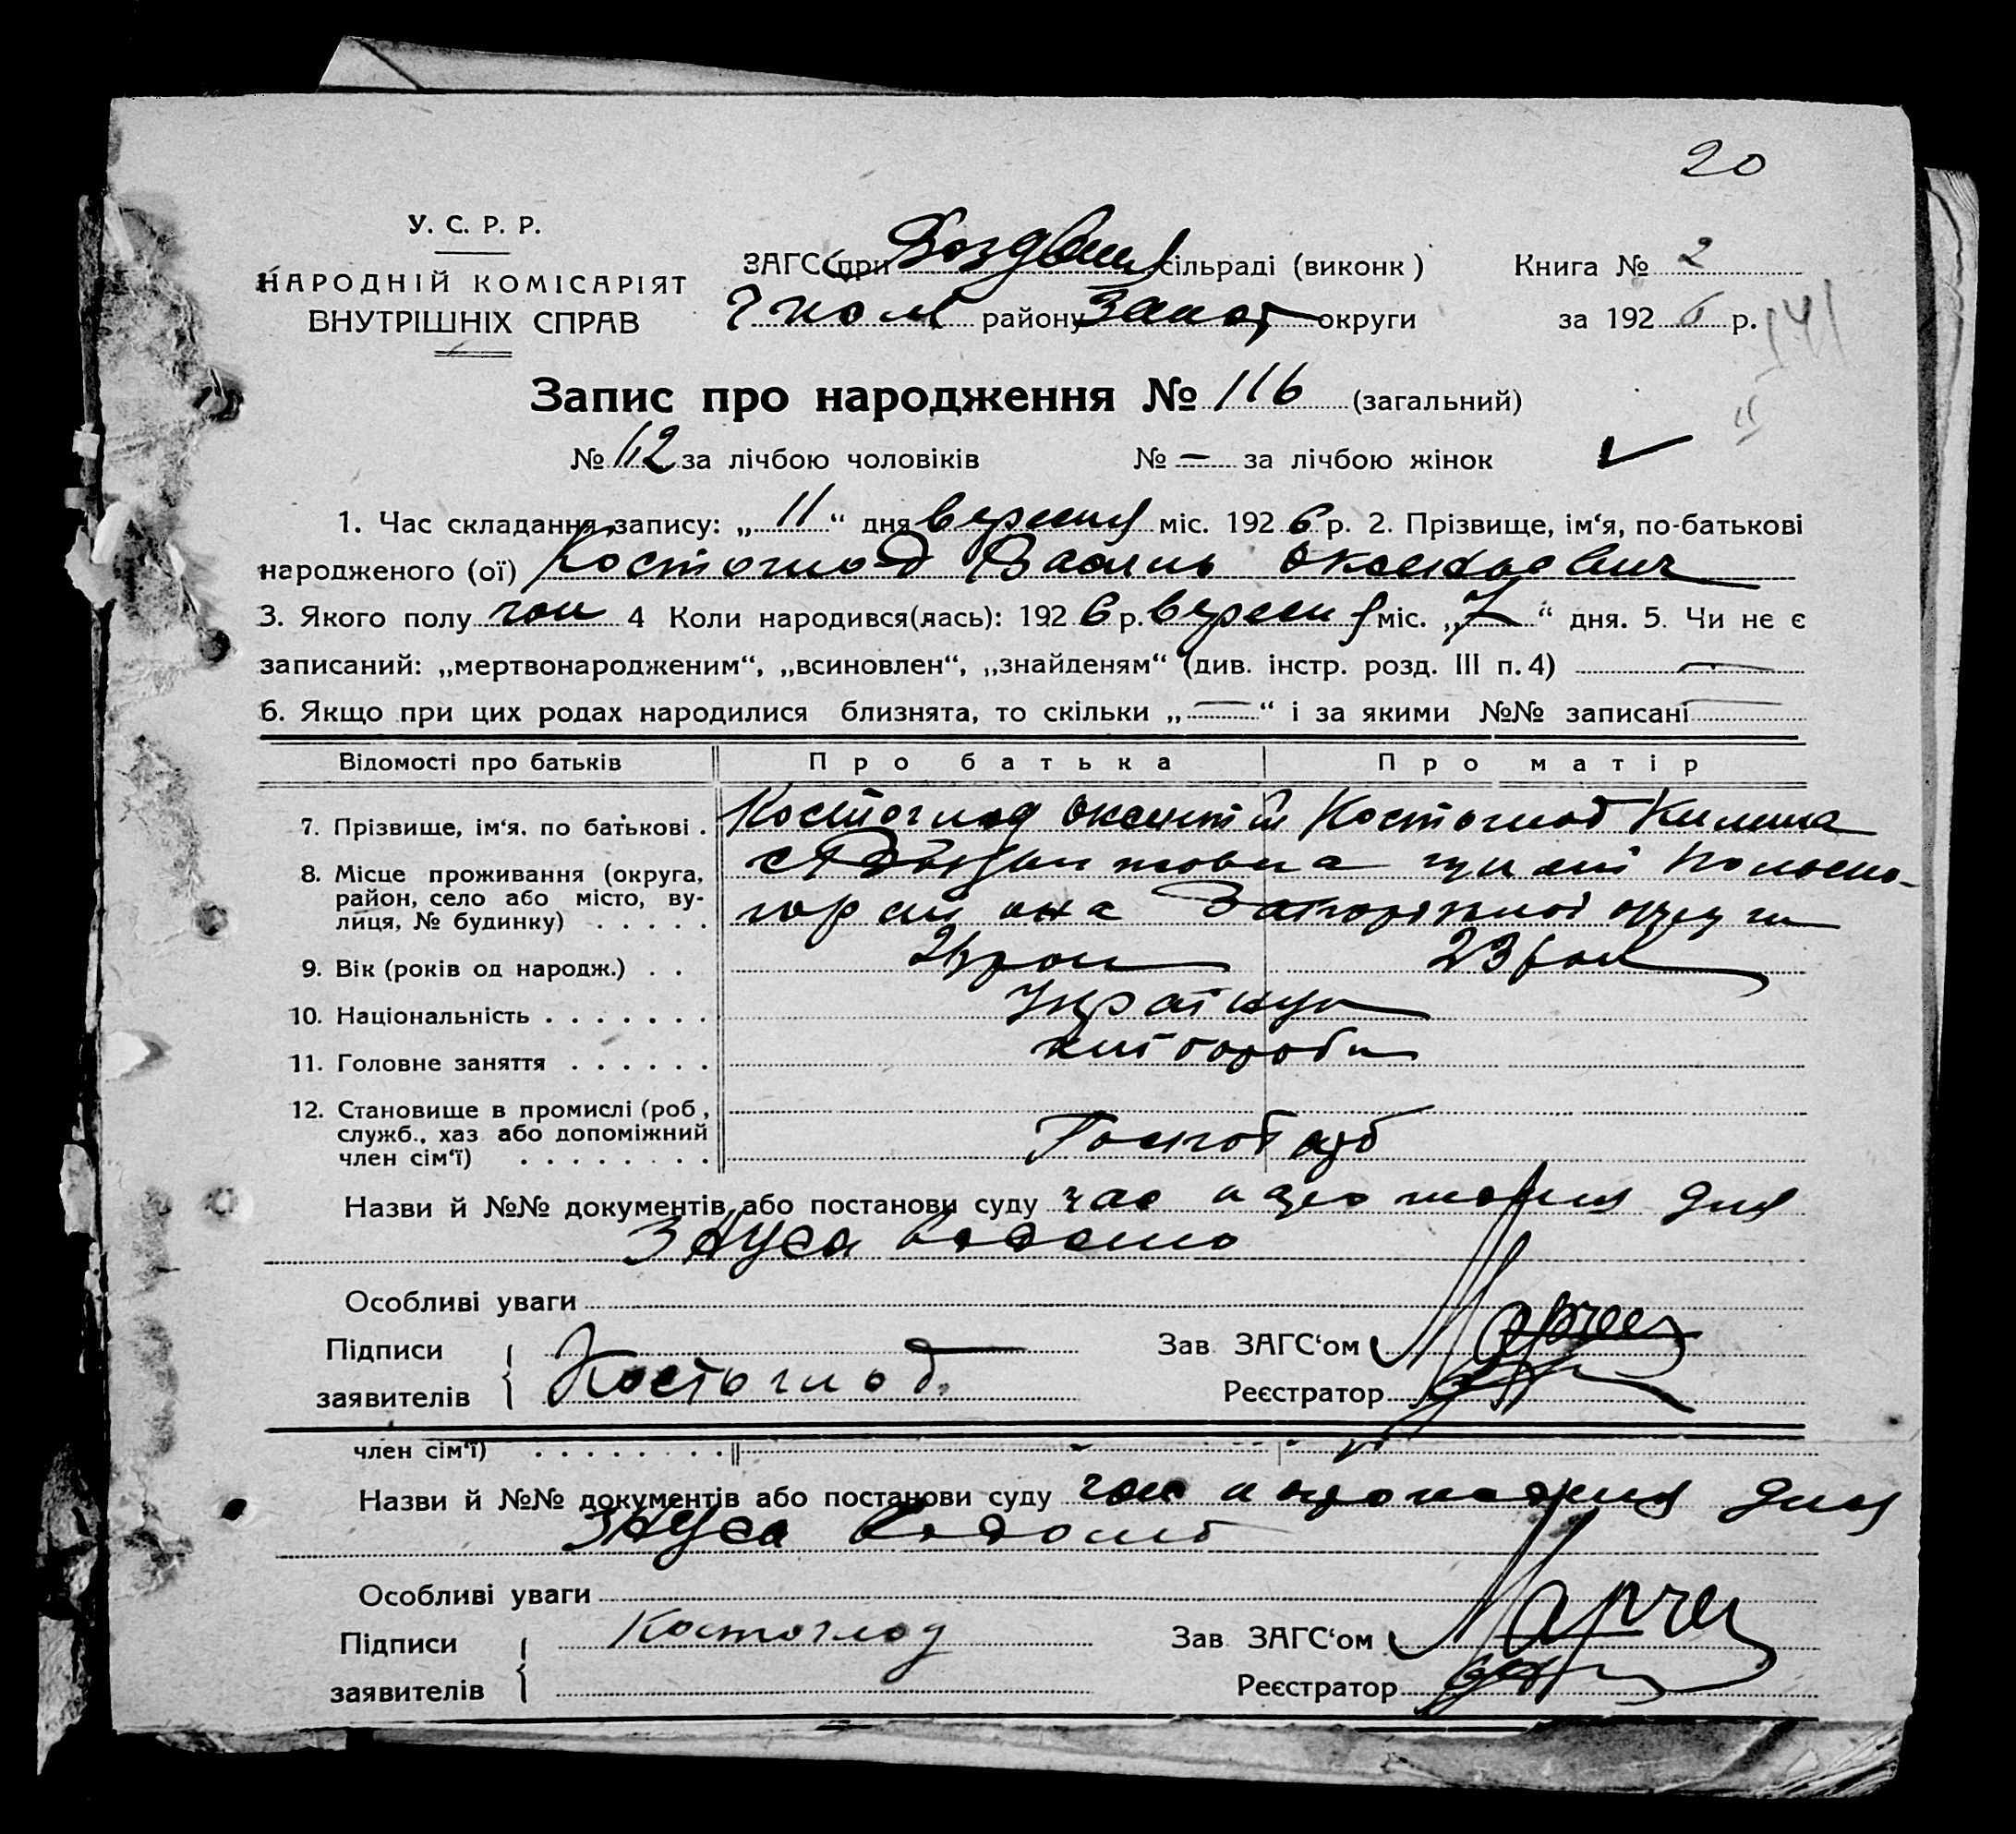 20
У. С. Р. Р.
НАРОДНІЙ КОМІСАРІЯТ
ВНУТРІШНІХ СПРАВ
ЗАГС при Воздвиж сільраді (виконк)
району Запор округи
Книга № 2
за 1926 р. 141
Запис про народження № 116 (загальний)
№ 62 за лічбою чоловіків № — за лічбою жінок
1. Час складання запису: „ 11 “ дня вересня міс. 1926 р. 2. Прізвище, ім‘я, по-батькові
народженого (ої) Костоглод Василь Оксентьевич
3. Якого полу чол 4 Коли народився(лась): 1926 р. вересня міс. „ 7 “ дня. 5. Чи не є
записаний: „мертвонародженим“, „всиновлен“, „знайденям“ (див. інстр. розд. III п. 4) —
6. Якщо при цих родах народилися близнята, то скільки „ — “ і за якими №№ записані —
Відомості про батьків Про батька Про матір
7. Прізвище, ім‘я, по батькові . Костоглод Оксентій Костоглод Килина
8. Місце проживання (округа,
район, село або місто, ву-
лиця, № будинку) . . . . . Запорізької округи
9. Вік (років од народж.) . . 23 рок
10. Національність . . . . . . . Українці
11. Головне заняття . . . . . . хлібороби
12. Становище в промислі (роб,
служб., хаз або допоміжний
член сім‘ї) . . . . . . . .
Назви й №№ документів або постанови суду час дня
Особливі уваги
Підписи
заявителів Костоглод
Зав ЗАГС‘ом
Реєстратор
член сім‘ї) . . . . . . . .
Назви й №№ документів або постанови суду час дня
Особливі уваги
Підписи Костоглод
заявителів
Зав ЗАГС‘ом
Реєстратор